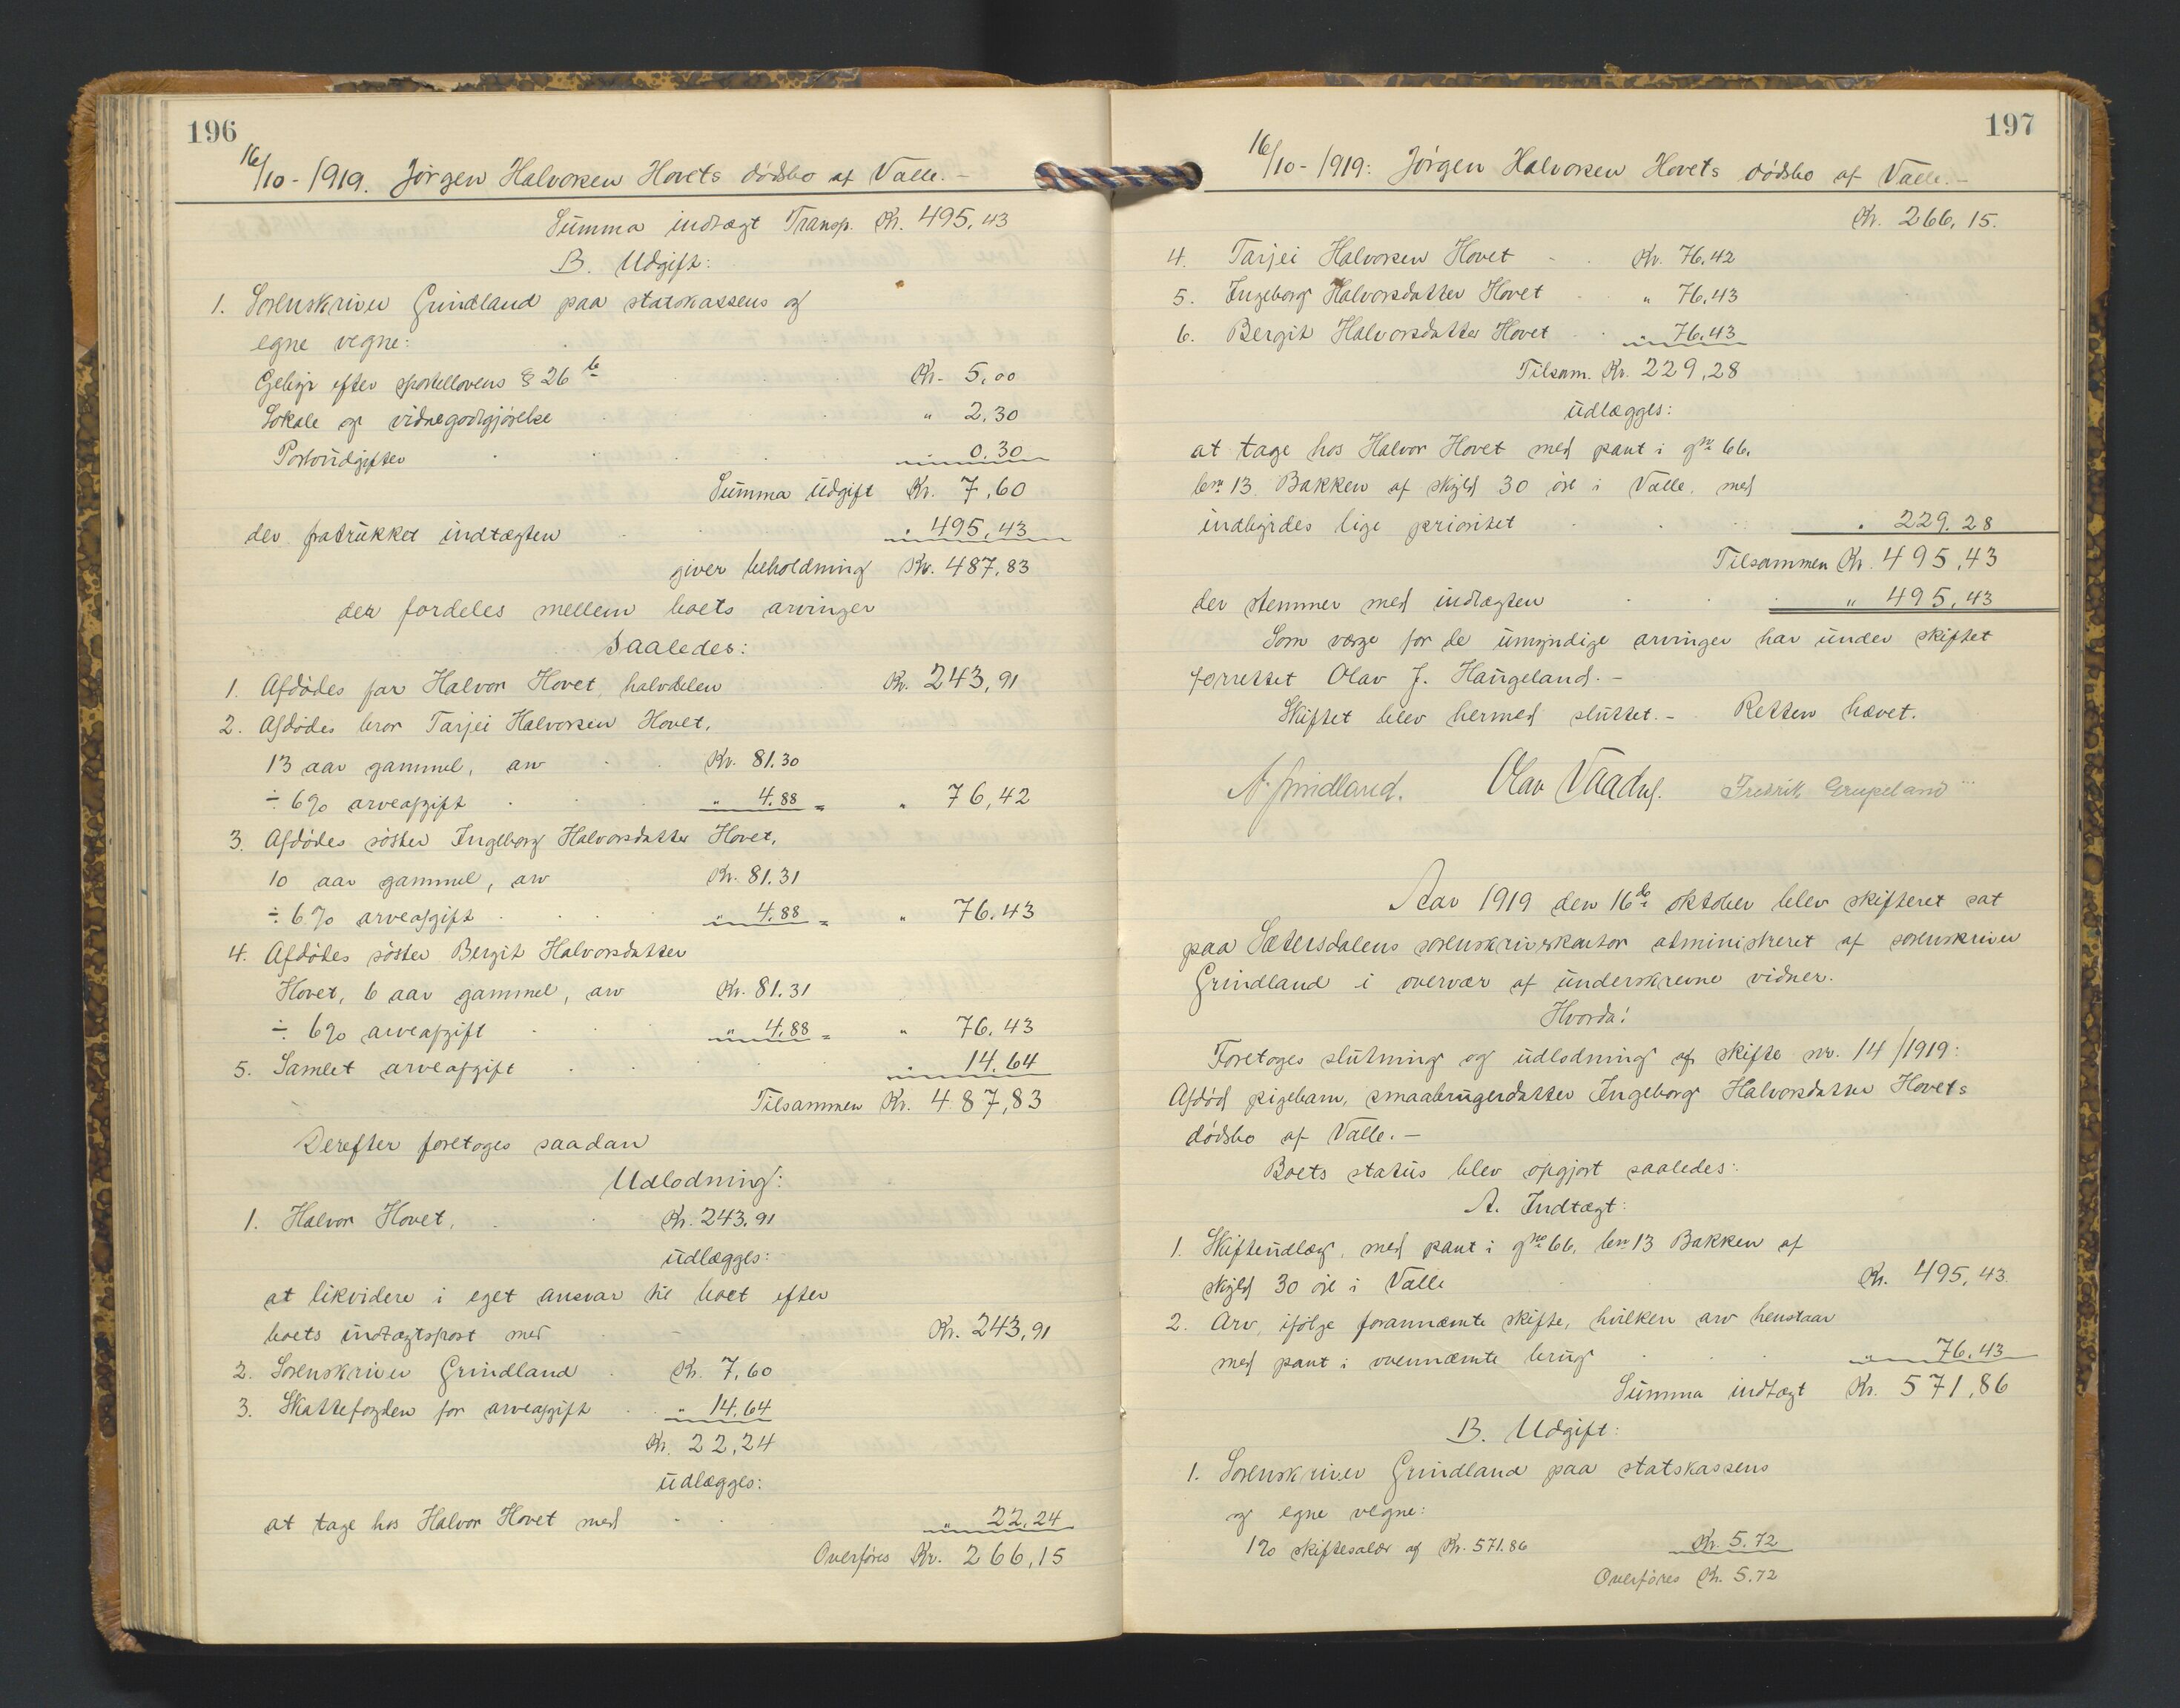 196
16/10 - 1919. Jörgen Halvorsen Hovets dödsbo af Valle. -
Summa indtægt Transp. Kr. 495,43
B. Udgift:
1. Sorenskriver Grindland paa statskassens og
egne vegne:
Gebyr efter sportellovens § 26 b Kr. 5,00
Lokale og vidnegodtgjörelse " 2,30
Portoudgifter " 0.30
Summa udgift Kr. 7,60
der fratrukket indtægten " 495,43
giver beholdning Kr. 487,83
der fordeles mellem boets arvinger
Saaledes:
1. Afdödes far Halvor Hovet, halvdelen Kr. 243,91
2. Afdödes bror Tarjei Halvorsen Hovet,
13 aar gammel, arv Kr. 81.30
÷ 6% arveafgift " 4.88 = " 76,42
3. Afdödes söster Ingeborg Halvorsdatter Hovet,
10 aar gammel, arv Kr. 81.31
÷ 6% arveafgift " 4.88 = " 76.43
4. Afdödes söster Bergit Halvorsdatter
Hovet, 6 aar gammel, arv Kr. 81.31
÷ 6% arveafgift " 4.88 = " 76.43
5. Samlet arveafgift " 14.64
Tilsammen Kr. 487,83
Derefter foretoges saadan
Udlodning:
1. Halvor Hovet, Kr. 243,91
udlægges:
at likvidere i eget ansvar til boet efter
boets indtægtspost med Kr. 243,91
2. Sorenskriver Grindland Kr. 7,60
3. Skattefogden for arveafgift " 14.64
Kr. 22,24
udlægges:
at tage hos Halvor Hovet med " 22,24
Overföres Kr. 266,15
197
16/10 - 1919: Jörgen Halvorsen Hovets dödsbo af Valle. -
Kr. 266,15.
4. Tarjei Halvorsen Hovet Kr. 76,42
5. Ingeborg Halvorsdatter Hovet " 76,43
6. Bergit Halvorsdatter Hovet " 76,43
Tilsam. Kr. 229,28
udlægges:
at tage hos Halvor Hovet med pant i gno 66,
bno 13 Bakken af skyld 30 öre i Valle, med
indbyrdes lige prioritet " 229.28
Tilsammen Kr. 495,43
der stemmer med indtægten " 495,43
Som værge for de umyndige arvinger har under skiftet
forrettet Olav J. Haugeland. -
Skiftet blev hermed sluttet. - Retten hævet.
N. Grindland. Olav Fredrik
Aar 1919 den 16de oktober blev skifteret sat
paa Sætersdalens sorenskriverkontor administreret af sorenskriver
Grindland i overvær af underskrevne vidner.
Hvorda!
Foretoges slutning og udlodning af skifte nr. 14/1919:
Afdöd pigebarn, smaabrugerdatter Ingeborg Halvorsdatter Hovets
dödsbo af Valle. -
Boets status blev opgjort saaledes:
A. Indtægt:
1. Skifteudlæg, med pant i gno 66, bno 13 Bakken af
skyld 30 öre i Valle Kr. 495,43
2. Arv, ifölge forannæmte skifte, hvilken arv henstaar
med pant i ovennæmte brug " 76,43
Summa indtægt Kr. 571,86
B. Udgift:
1. Sorenskriver Grindland paa statskassens
og egne vegne:
1% skiftesalær af Kr. 571.86 Kr. 5.72
Overföres Kr. 5.72